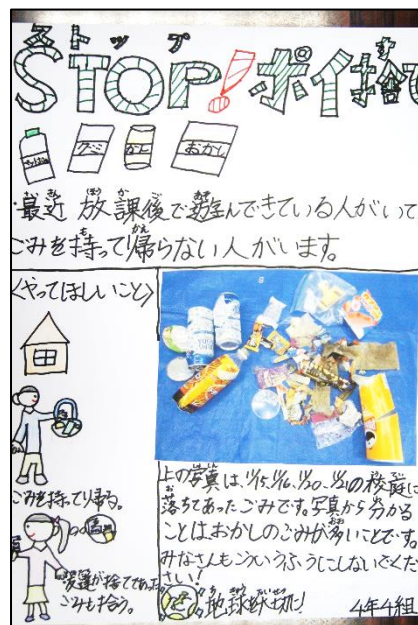 ストップ
STOP!ポイ捨て
グミ
おかし
最近 放課後で遊んできている人がいて
ごみを持って帰らない人がいます。
〈やってほしいこと〉
ごみを持って帰る。
友達が捨てであった
ごみも拾う。
上の写真は、1/15、1/16、1/20、1/21の校庭に
落ちてあったごみです。写真から分かる
ことはおかしのごみが多いことです。
みなさんもこういうふうにしないでくだ
さい!
地球は大切に!
4年4組